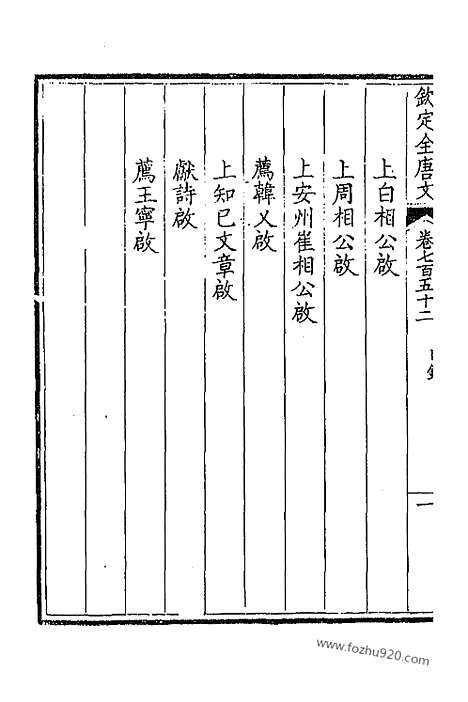 欽定全唐文 卷七百五十二 目錄 一
上白相公啟
上周相公啟
上安州崔相公啟
薦韓乂啟
上知己文章啟
獻詩啟
薦王寧啟
www.fozhu920.com